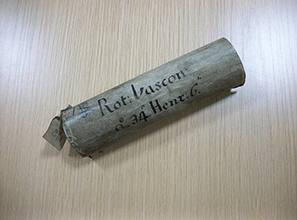 Rot: Vascon
a.º 34 Henr. 6.